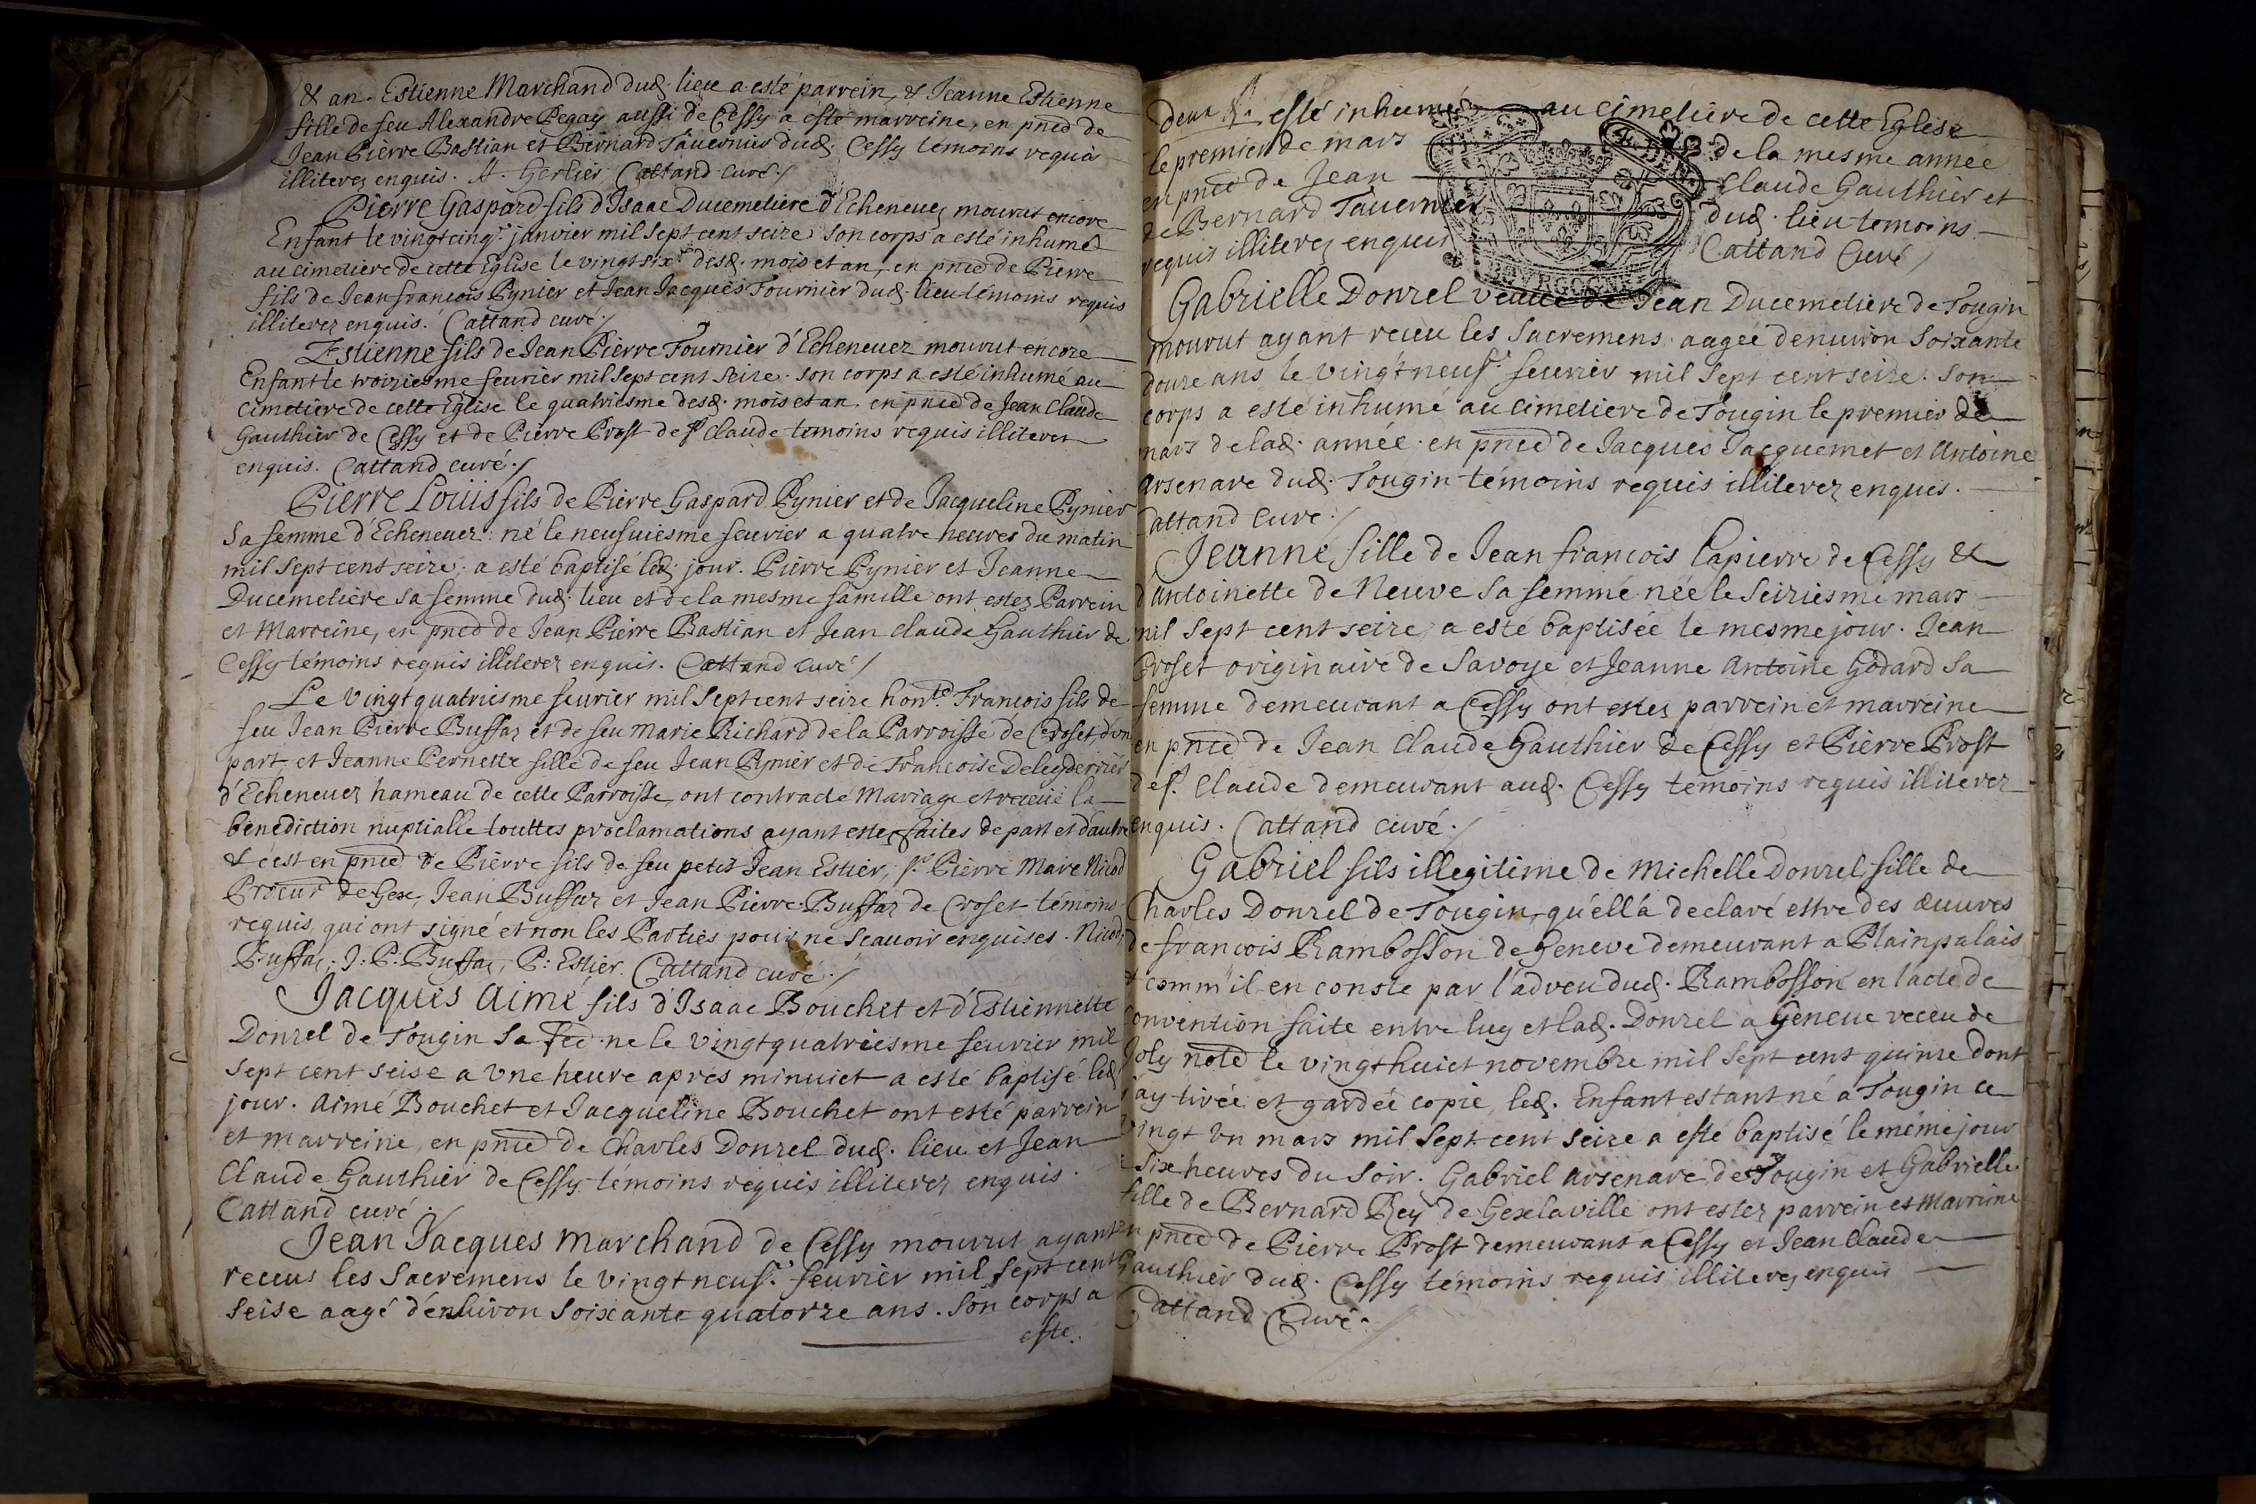 & an. Estienne Marchand dud. lieu a esté parrein, & Jeanne Estienne
fille de feu Alexandre Pegay aussi de Cessy a esté marreine, en pnce de
Jean Pierre Bastian et Bernard Tavernier dud. Cessy témoins requis
illiterez enquis. A. Gerlier Cattand curé./
Pierre Gaspard fils d'Isaac Ducemetiere d'Echenevez mourut encore
Enfant le vingt cinq.e janvier mil sept cent seize son corps a esté inhumé
au cimetiere de cette Eglise le vingt six.e desd. mois et an, en pnce de Pierre
fils de Jean francois Pynier et Jean Jacques Tournier dud. lieu témoins requis
illiterez enquis. Cattand curé./
Estienne fils de Jean Pierre Tournier d'Echenevez mourut encore
Enfant le troiziesme fevrier mil sept cent seize. son corps a esté inhumé au
cimetiere de cette Eglise le quatriesme desd. mois et an. en pnce de Jean Claude
Gauthier de Cessy et de Pierre Prost de st Claude temoins requis illiterez
enquis. Cattand curé./
Pierre Louis fils de Pierre Gaspard Pynier et de Jacqueline Pynier
sa femme d'Echenevez: né le neufviesme fevrier a quatre heures du matin
mil sept cent seize: a esté baptisé led. jour. Pierre Pynier et Jeanne
Ducemetiere sa femme dud. lieu et de la mesme famille ont estez Parrein
et Marreine, en pnce de Jean Pierre Bastian et Jean Claude Gauthier de
Cessy témoins requis illiterez enquis. Cattand curé /
Le vingt quatriesme fevrier mil sept cent seize hon.te Francois fils de
feu Jean Pierre Buffaz et de feu Marie Richard de la Parroisse de Croset, d'vn
part, et Jeanne Pernette fille de feu Jean Pynier et de Francoise Deleyderrier
d'Echenevez hameau de cette Parroisse, ont contracte Mariage et receue la
benediction nuptialle touttes proclamations ayant estez faites de part et d'autre
& c'est en pnce de Pierre fils de feu petit Jean Estier, sr. Pierre Marc Nicod
Prieur de Gex, Jean Buffaz et Jean Pierre Buffaz de Croset témoins
requis, qui ont signé et non les Parties pour ne scavoir enquises. Nicod,
Buffaz. J. P. Buffaz, P: Estier. Cattand curé./
Jacques Aimé fils d'Isaac Bouchet et d'Estiennette
Donzel de Tougin sa fee né le vingt quatriesme fevrier mil
sept cent seise a vne heure apres minuict a esté baptisé led
jour. Aimé Bouchet et Jacqueline Bouchet ont esté parrein
et marreine, en pnce de Charles Donzel dud. lieu et Jean
Claude Gauthier de Cessy témoins requis illiterez enquis.
Cattand curé./
Jean Jacques Marchand de Cessy mourut ayant
receus les Sacremens le vingt neuf.e fevrier mil sept cent
seise aagé d'environ soixante quatorze ans. son corps a
esté.
esté inhumé au cimetiere de cette Eglise
le premier de mars de la mesme année
en pnce de Jean Claude Gauthier et
de Bernard Tavernier dud. lieu temoins
requis illiterez enquis Cattand Curé /
BOVRGOGNE
Gabrielle Donzel veuve de Jean Ducemetiere de Tougin
mourut ayant receu les Sacremens aagée denviron soixante
douze ans le vingt neuf.e fevrier mil sept cent seize. son
corps a esté inhumé au cimetiere de Tougin le premier de
mars de lad. année. en pnce de Jacques Jacquemet et Antoine
Arsenare dud. Tougin témoins requis illiterez enquis.
Cattand Curé./
Jeanne fille de Jean francois Lapierre de Cessy &
d'Antoinette de Neuve sa femme née le seiziesme mars
mil sept cent seize, a esté baptisée le mesme jour. Jean
Croset originaire de Savoye et Jeanne Antoine Godard sa
femme demeurant a Cessy ont estez parrein et marreine
en pnce de Jean Claude Gauthier de Cessy et Pierre Prost
de st. Claude demeurant aud. Cessy témoins requis illiterez
enquis. Cattand curé./
Gabriel fils illegitime de Michelle Donzel, fille de
Charles Donzel de Tougin, qu'ell'a declaré estre des œuvres
de francois Rambosson de Geneve demeurant a Plainpalais
& comm'il en conste par l'adveu dud. Rambosson en l'acte de
convention faite entre luy et lad. Donzel a Geneve receu de
Joly note le vingt huict novembre mil sept cent quinze dont
j'ay tirée et gardée copie, led. Enfant estant né a Tougin ce
vingt vn mars mil sept cent seize a esté baptisé le méme jour
a six heures du soir. Gabriel Arsenare de Tougin et Gabrielle
fille de Bernard Rey de Gexlaville ont estez parrein et Marreine
en pnce de Pierre Prost demeurant a Cessy et Jean Claude
Gauthier dud. Cessy témoins requis illiterez enquis
Cattand Curé./